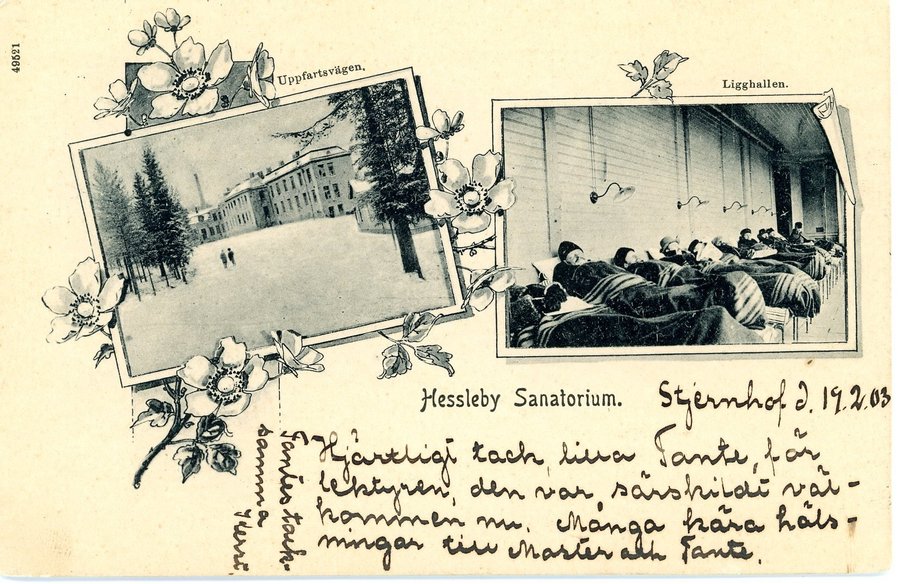 49521
Uppfartsvägen.
Ligghallen.
Hessleby Sanatorium.
Stjernhof d. 19.2.03
Hjärtligt tack, lilla Tante, för
lektyren, den var särskildt väl-
kommen nu. Många kära häls-
ningar till Moster och Tante.
Tantes tack-
samma